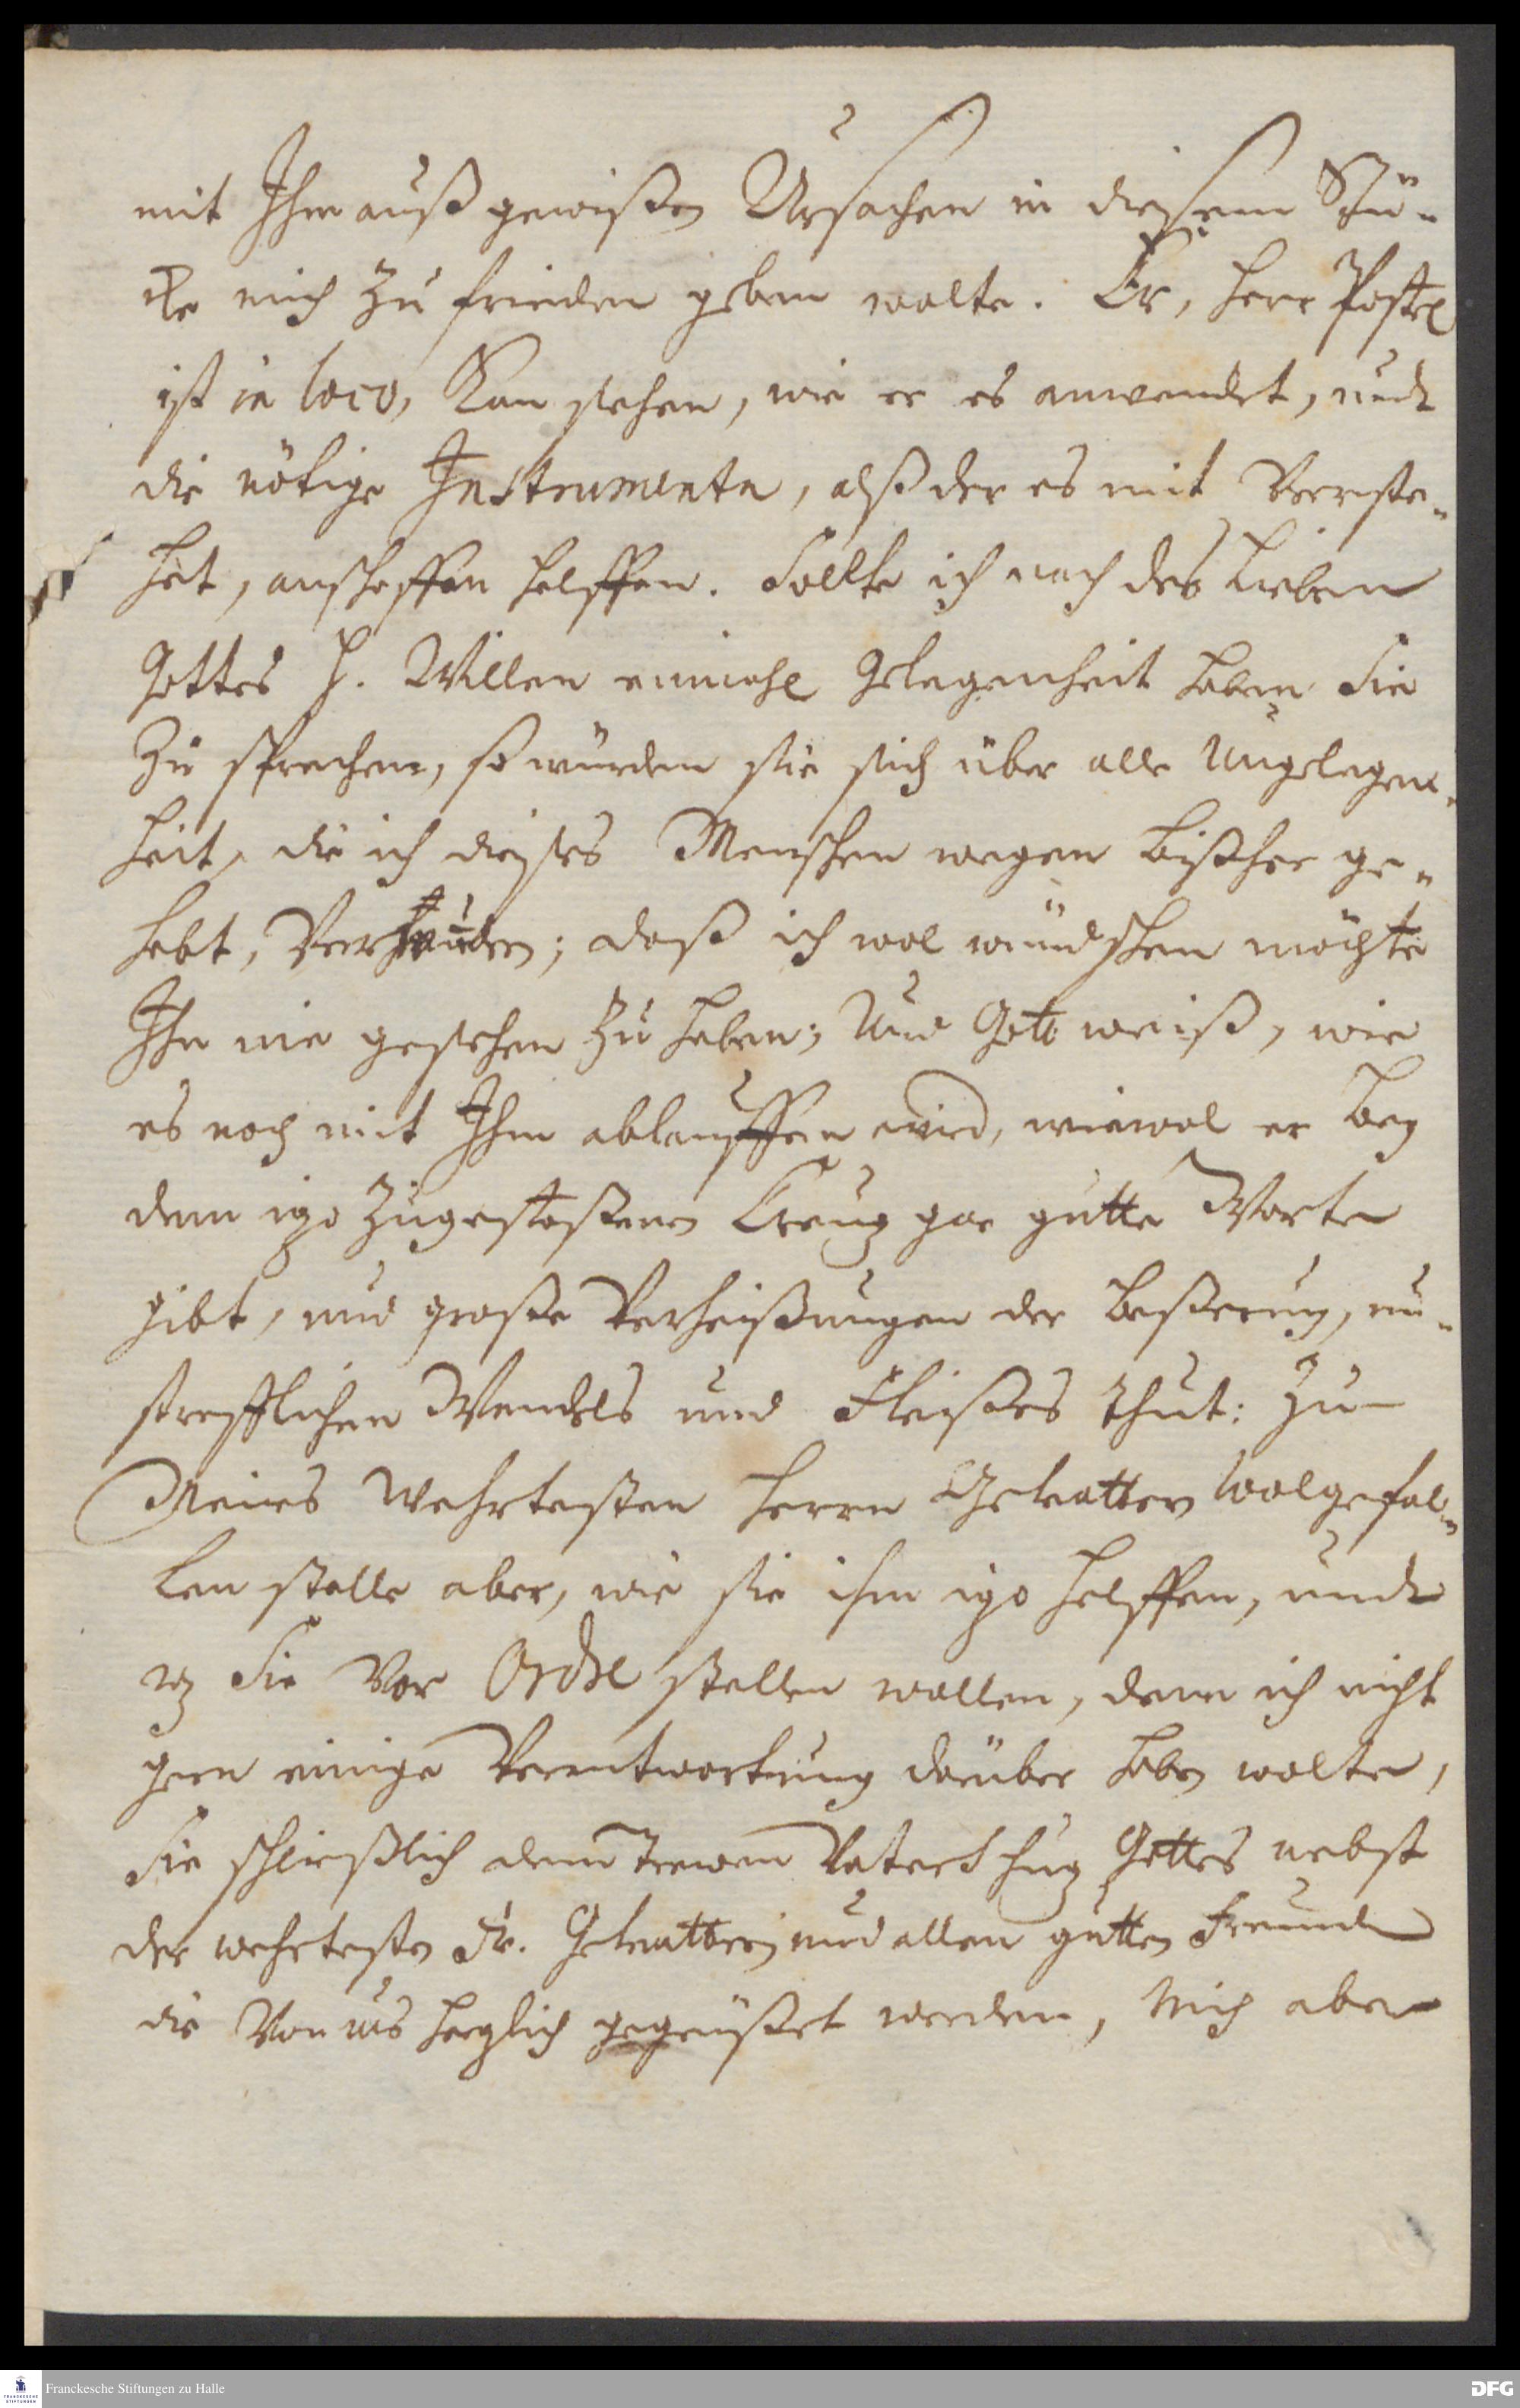 mit Ihm auß gewißen Ursachen in diesem Stü-
cke mich zu frieden geben wolte. Er, Herr Postel
ist in loco, Kan sehen, wie er es anwendet, undt
die nötige Instrumenta, alß der es mit verste-
het, anschaffen helffen. Sollte ich nach des Lieben
Gottes H. Willen einmahl Gelegenheit haben Sie
zu sprechen, so würden sie sich über alle Ungelegen-
heit, die ich dieses Menschen wegen bißher ge-
habt, ; daß ich wol wündschen möchte
Ihn nie gesehen zu haben; Und Gott weiß, wie
es noch mit Ihm ablauffen wird, wiewol er bey
dem izo zugestoßenen Creuz gar gutte Worte
gibt, und große Verheißungen der beßerung, un-
strefflichen Wandels und Fleißes thut: Zu
Meines Wehrtesten Herrn Gevatters Wolgefal-
len stelle aber, wie sie ihm izo helffen, undt
 Sie vor Ordre stellen wollen, denn ich nicht
gern einige Verantwortung darüber haben wolte,
Sie schließlich dem trewen Vaterschuz Gottes nebst
der wehrtesten Fr. Gevatterin und allen gutten Freunden
die von uns herzlich gegrüßet werden, Mich aber
Franckesche Stiftungen zu Halle
FRANCKESCHE STIFTUNGEN
DFG